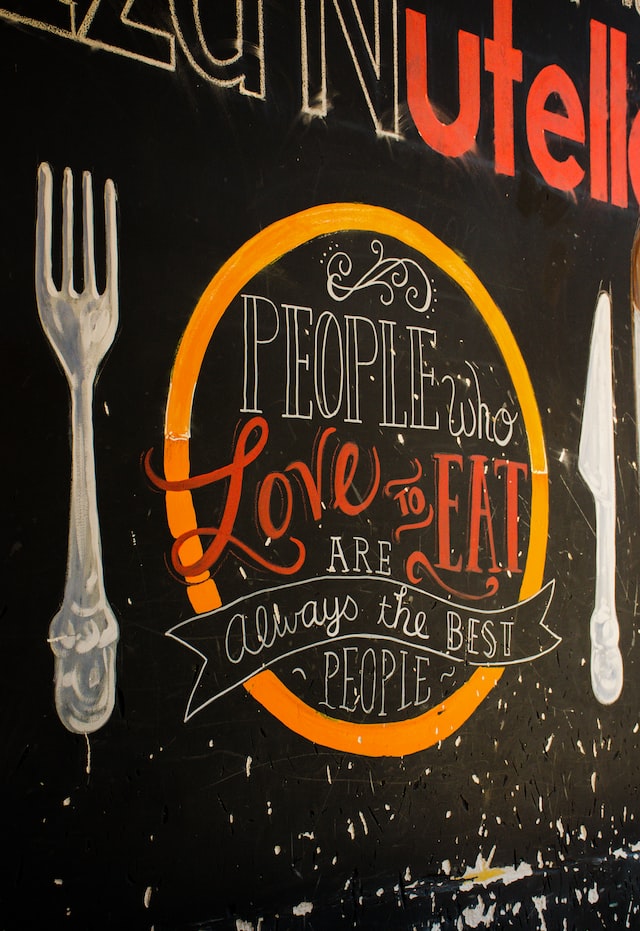 Nutell
PEOPLE who
Love TO EAT
ARE
always the BEST
~PEOPLE~